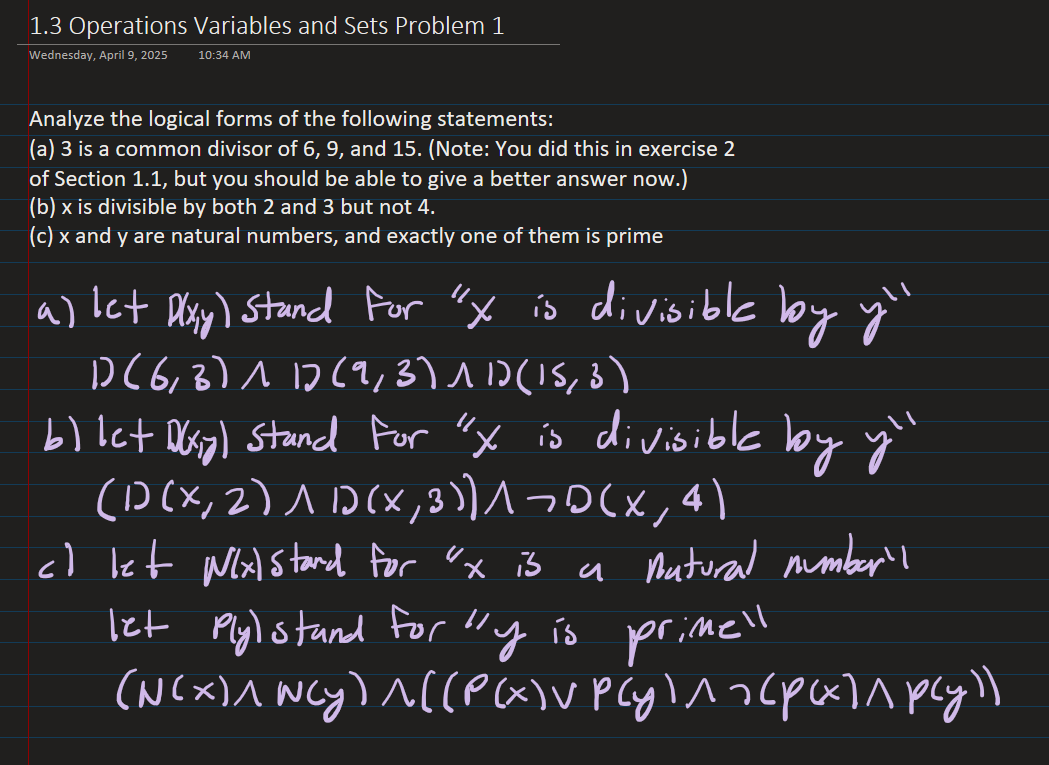 1.3 Operations Variables and Sets Problem 1
Wednesday, April 9, 2025 10:34 AM
Analyze the logical forms of the following statements:
(a) 3 is a common divisor of 6, 9, and 15. (Note: You did this in exercise 2
of Section 1.1, but you should be able to give a better answer now.)
(b) x is divisible by both 2 and 3 but not 4.
(c) x and y are natural numbers, and exactly one of them is prime
a) let D(x,y) stand for "x is divisible by y"
D(6,3) ∧ D(9,3) ∧ D(15,3)
b) let D(x,y) stand for "x is divisible by y"
(D(x,2) ∧ D(x,3)) ∧ ¬D(x,4)
c) let N(x) stand for "x is a natural number"
let P(y) stand for "y is prime"
(N(x) ∧ N(y) ∧ ((P(x) ∨ P(y) ∧ ¬(P(x) ∧ P(y))